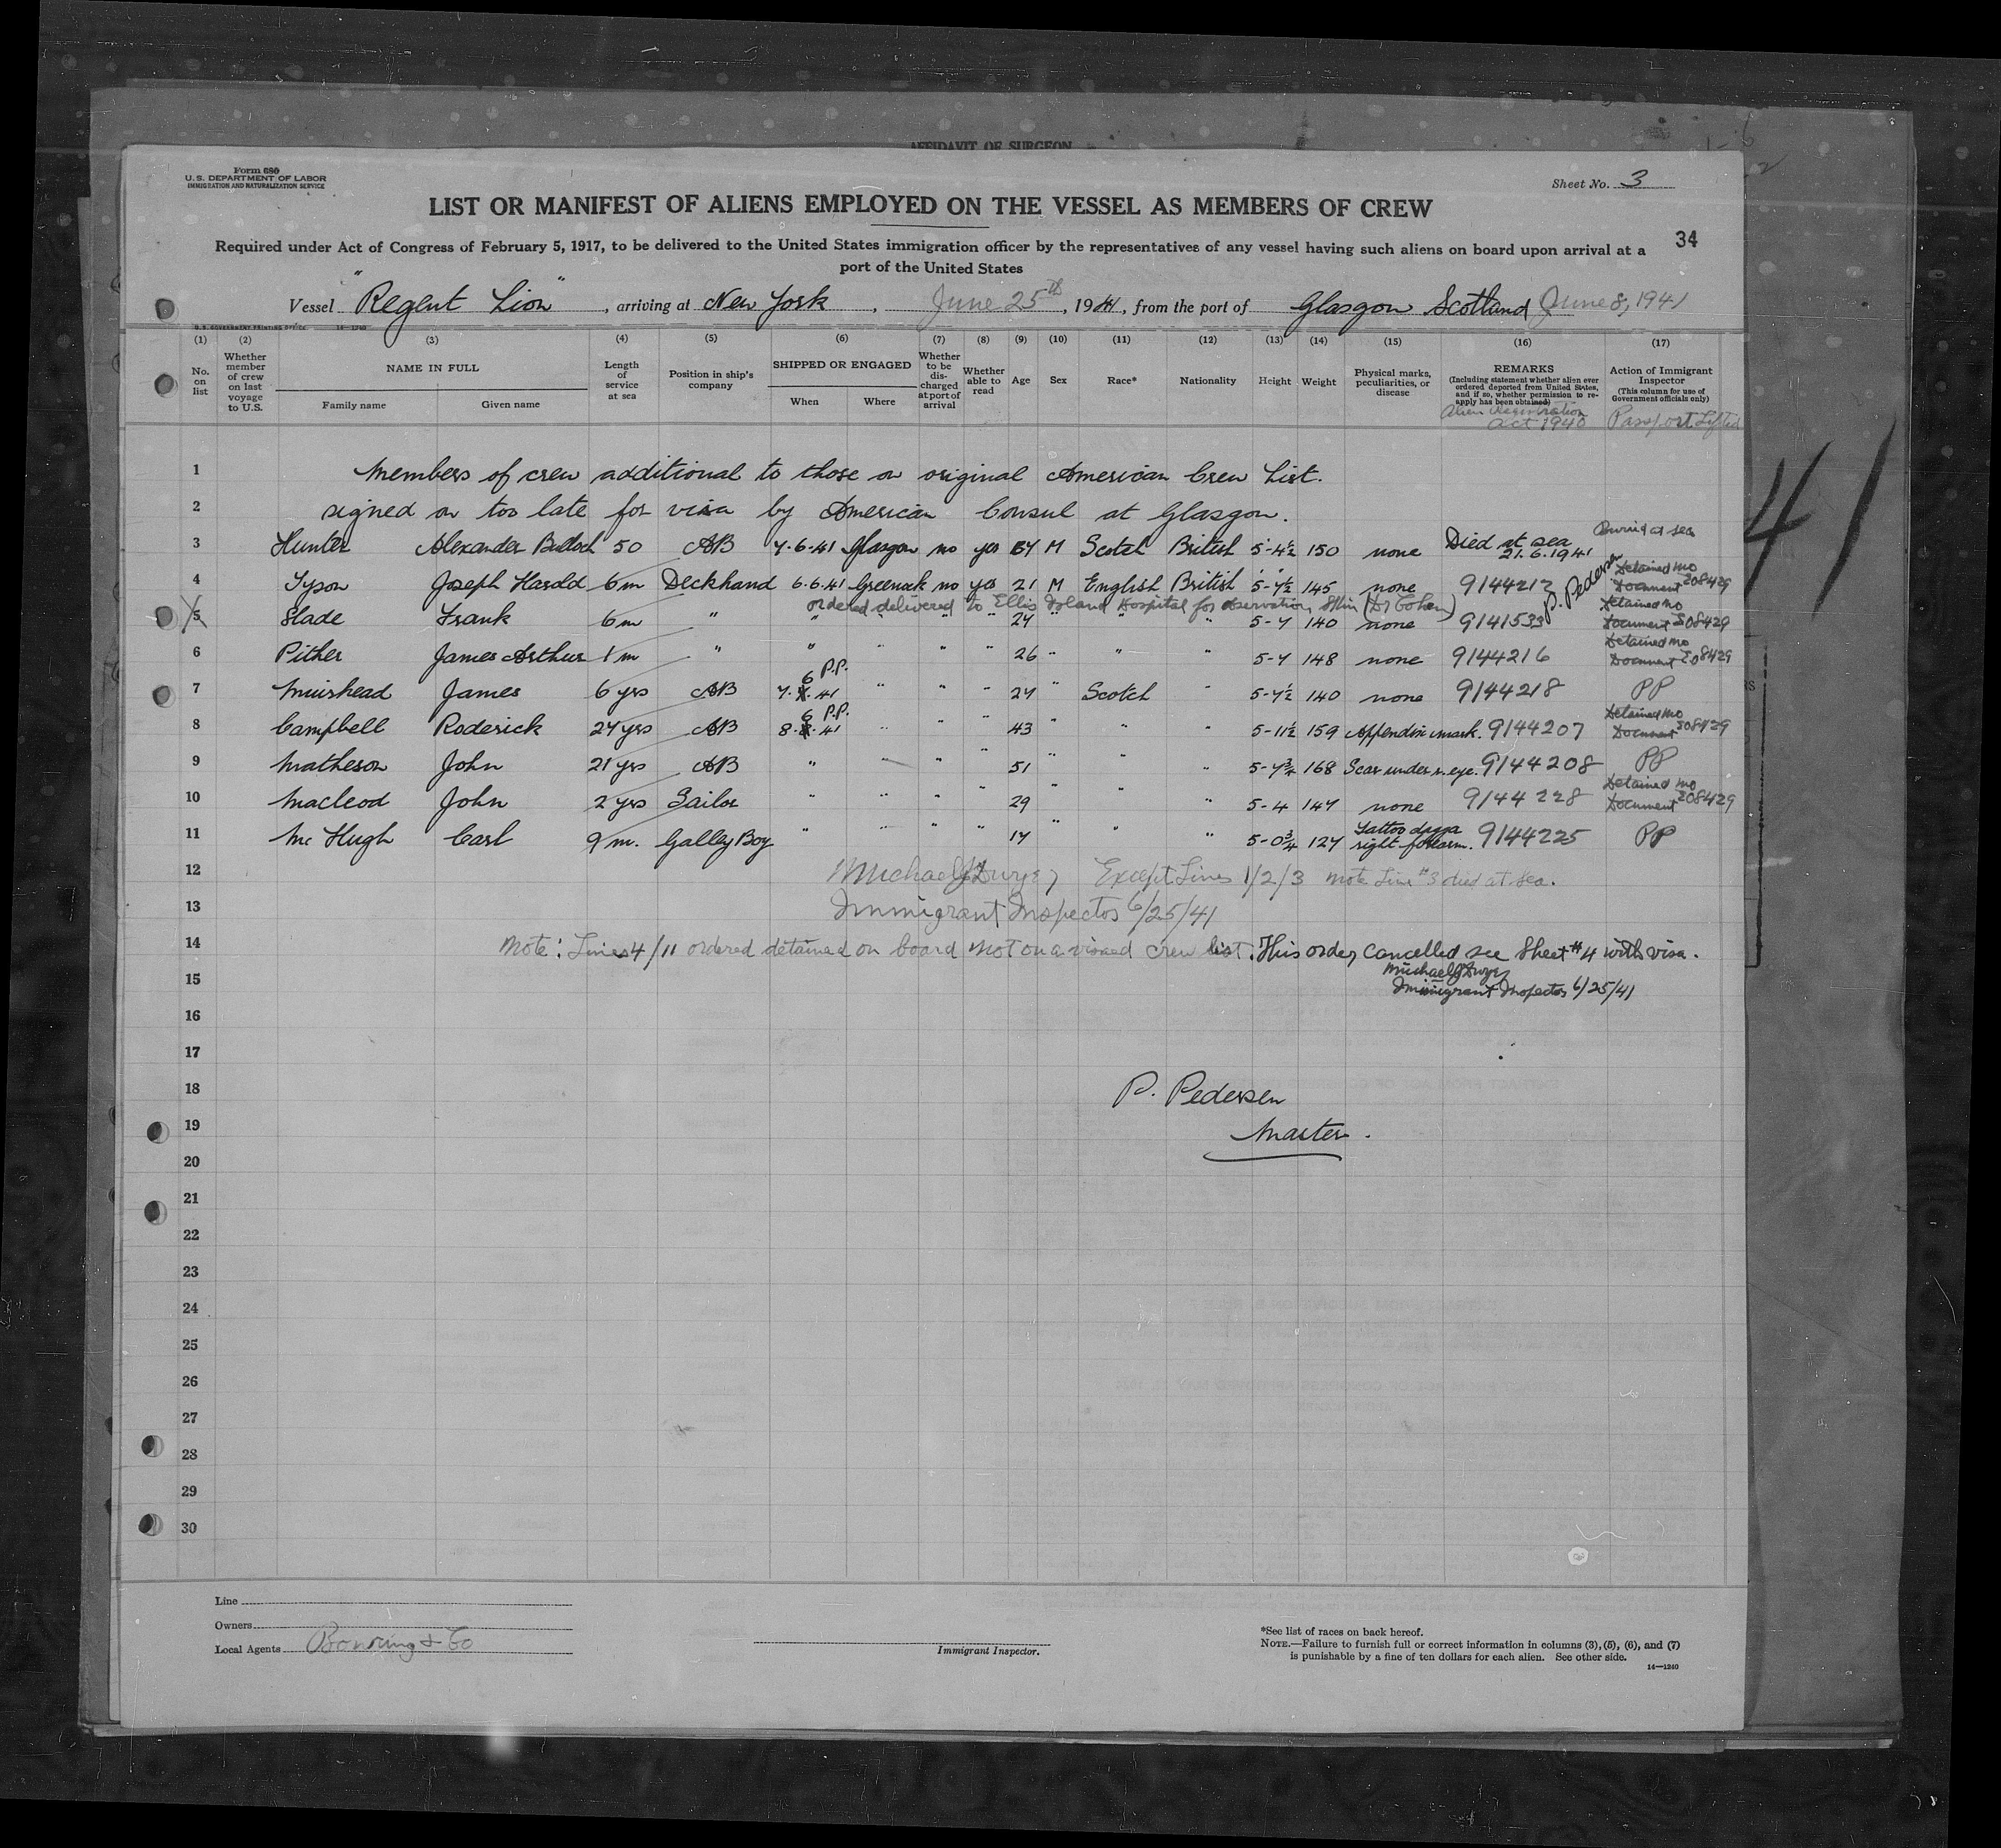 AFFIDAVIT OF SURGEON
Form 680
U.S. DEPARTMENT OF LABOR
IMMIGRATION AND NATURALIZATION SERVICE
Sheet No. 3
LIST OR MANIFEST OF ALIENS EMPLOYED ON THE VESSEL AS MEMBERS OF CREW
34
Required under Act of Congress of February 5, 1917, to be delivered to the United States immigration officer by the representatives of any vessel having such aliens on board upon arrival at a
port of the United States
Vessel "Regent Lion", arriving at New York, June 25th, 1941, from the port of Glasgow Scotland June 8, 1941
U.S. GOVERNMENT PRINTING OFFICE 14—1240
(1) (2) (3) (4) (5) (6) (7) (8) (9) (10) (11) (12) (13) (14) (15) (16) (17)
No. on list
Whether member of crew on last voyage to U.S.
NAME IN FULL
Family name
Given name
Length of service at sea
Position in ship's company
SHIPPED OR ENGAGED
When
Where
Whether to be discharged at port of arrival
Whether able to read
Age
Sex
Race*
Nationality
Height
Weight
Physical marks, peculiarities, or disease
REMARKS
(Including statement whether alien ever ordered deported from United States, and if so, whether permission to reapply has been obtained)
Alien Registration
Act 1940
Action of Immigrant Inspector
(This column for use of Government officials only)
Passport Lifted
41
1 Members of crew additional to those on original American Crew List.
2 signed on too late for visa by American Consul at Glasgow.
3 Hunter Alexander Bulloch 50 AB 7.6.41 Glasgow no yes 64 M Scotch British 5'-4½ 150 none Died at sea 21.6.1941 Buried at sea
4 Tyson Joseph Harold 6m Deckhand 6.6.41 Greenock no yes 21 M English British 5'-7½ 145 none 9144212 P. Pedersen Detained no Document 208429
ordered delivered to Ellis Island Hospital for observation (Dr Cohen)
5 Slade Frank 6m " " " " " 24 " " " 5-7 140 none 9141533 Detained no Document 208429
6 Pither James Arthur 1m " " " " " 26 " " " 5-7 148 none 9144216 Detained no Document 208429
7 Muirhead James 6 yrs AB 7.6.41 P.P. " " " 24 " Scotch " 5-7½ 140 none 9144218 PP
8 Campbell Roderick 27 yrs AB 8.6.41 P.P. " " " 43 " " " 5-11½ 159 Appendix mark. 9144207 Detained no Document 208429
9 Matheson John 21 yrs AB " " " " 51 " " " 5-7¾ 168 Scar under r. eye. 9144208 PP
10 Macleod John 2 yrs Sailor " " " " 29 " " " 5-4 147 none 9144228 Detained no Document 208429
11 Mc Hugh Carl 9 m. Galley Boy " " " " 17 " " " 5-0¾ 127 Tattoo right forearm. 9144225 PP
12 Michael J Dwyer Except Lines 1/2/3 Note Line #3 died at sea.
13 Immigrant Inspector 6/25/41
14 Note: Lines 4/11 ordered detained on board not on a visaed crew list. This order cancelled see Sheet #4 with visa.
Michael J Dwyer
15 Immigrant Inspector 6/25/41
16
17
18 P. Pedersen
19 Master.
20
21
22
23
24
25
26
27
28
29
30
Line
Owners
Local Agents Bowring & Co
Immigrant Inspector.
*See list of races on back hereof.
NOTE.—Failure to furnish full or correct information in columns (3), (5), (6), and (7)
is punishable by a fine of ten dollars for each alien. See other side.
14—1240